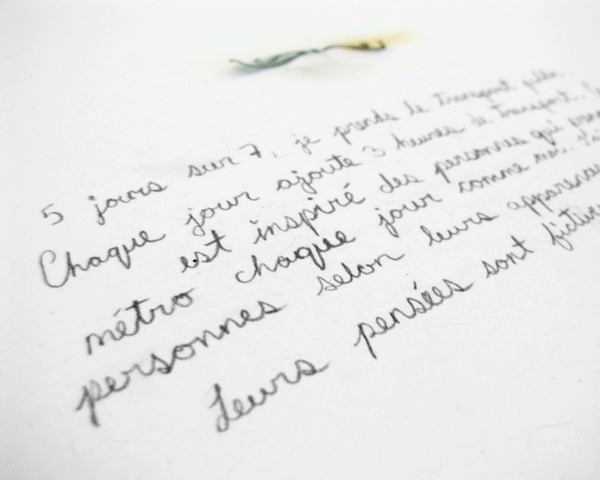 5 jours sur 7, je prends le transport
Chaque jour ajoute 3 heures de transport.
est inspiré des personnes qui
métro chaque jour comme moi.
personnes selon leurs apparences
Leurs pensées sont